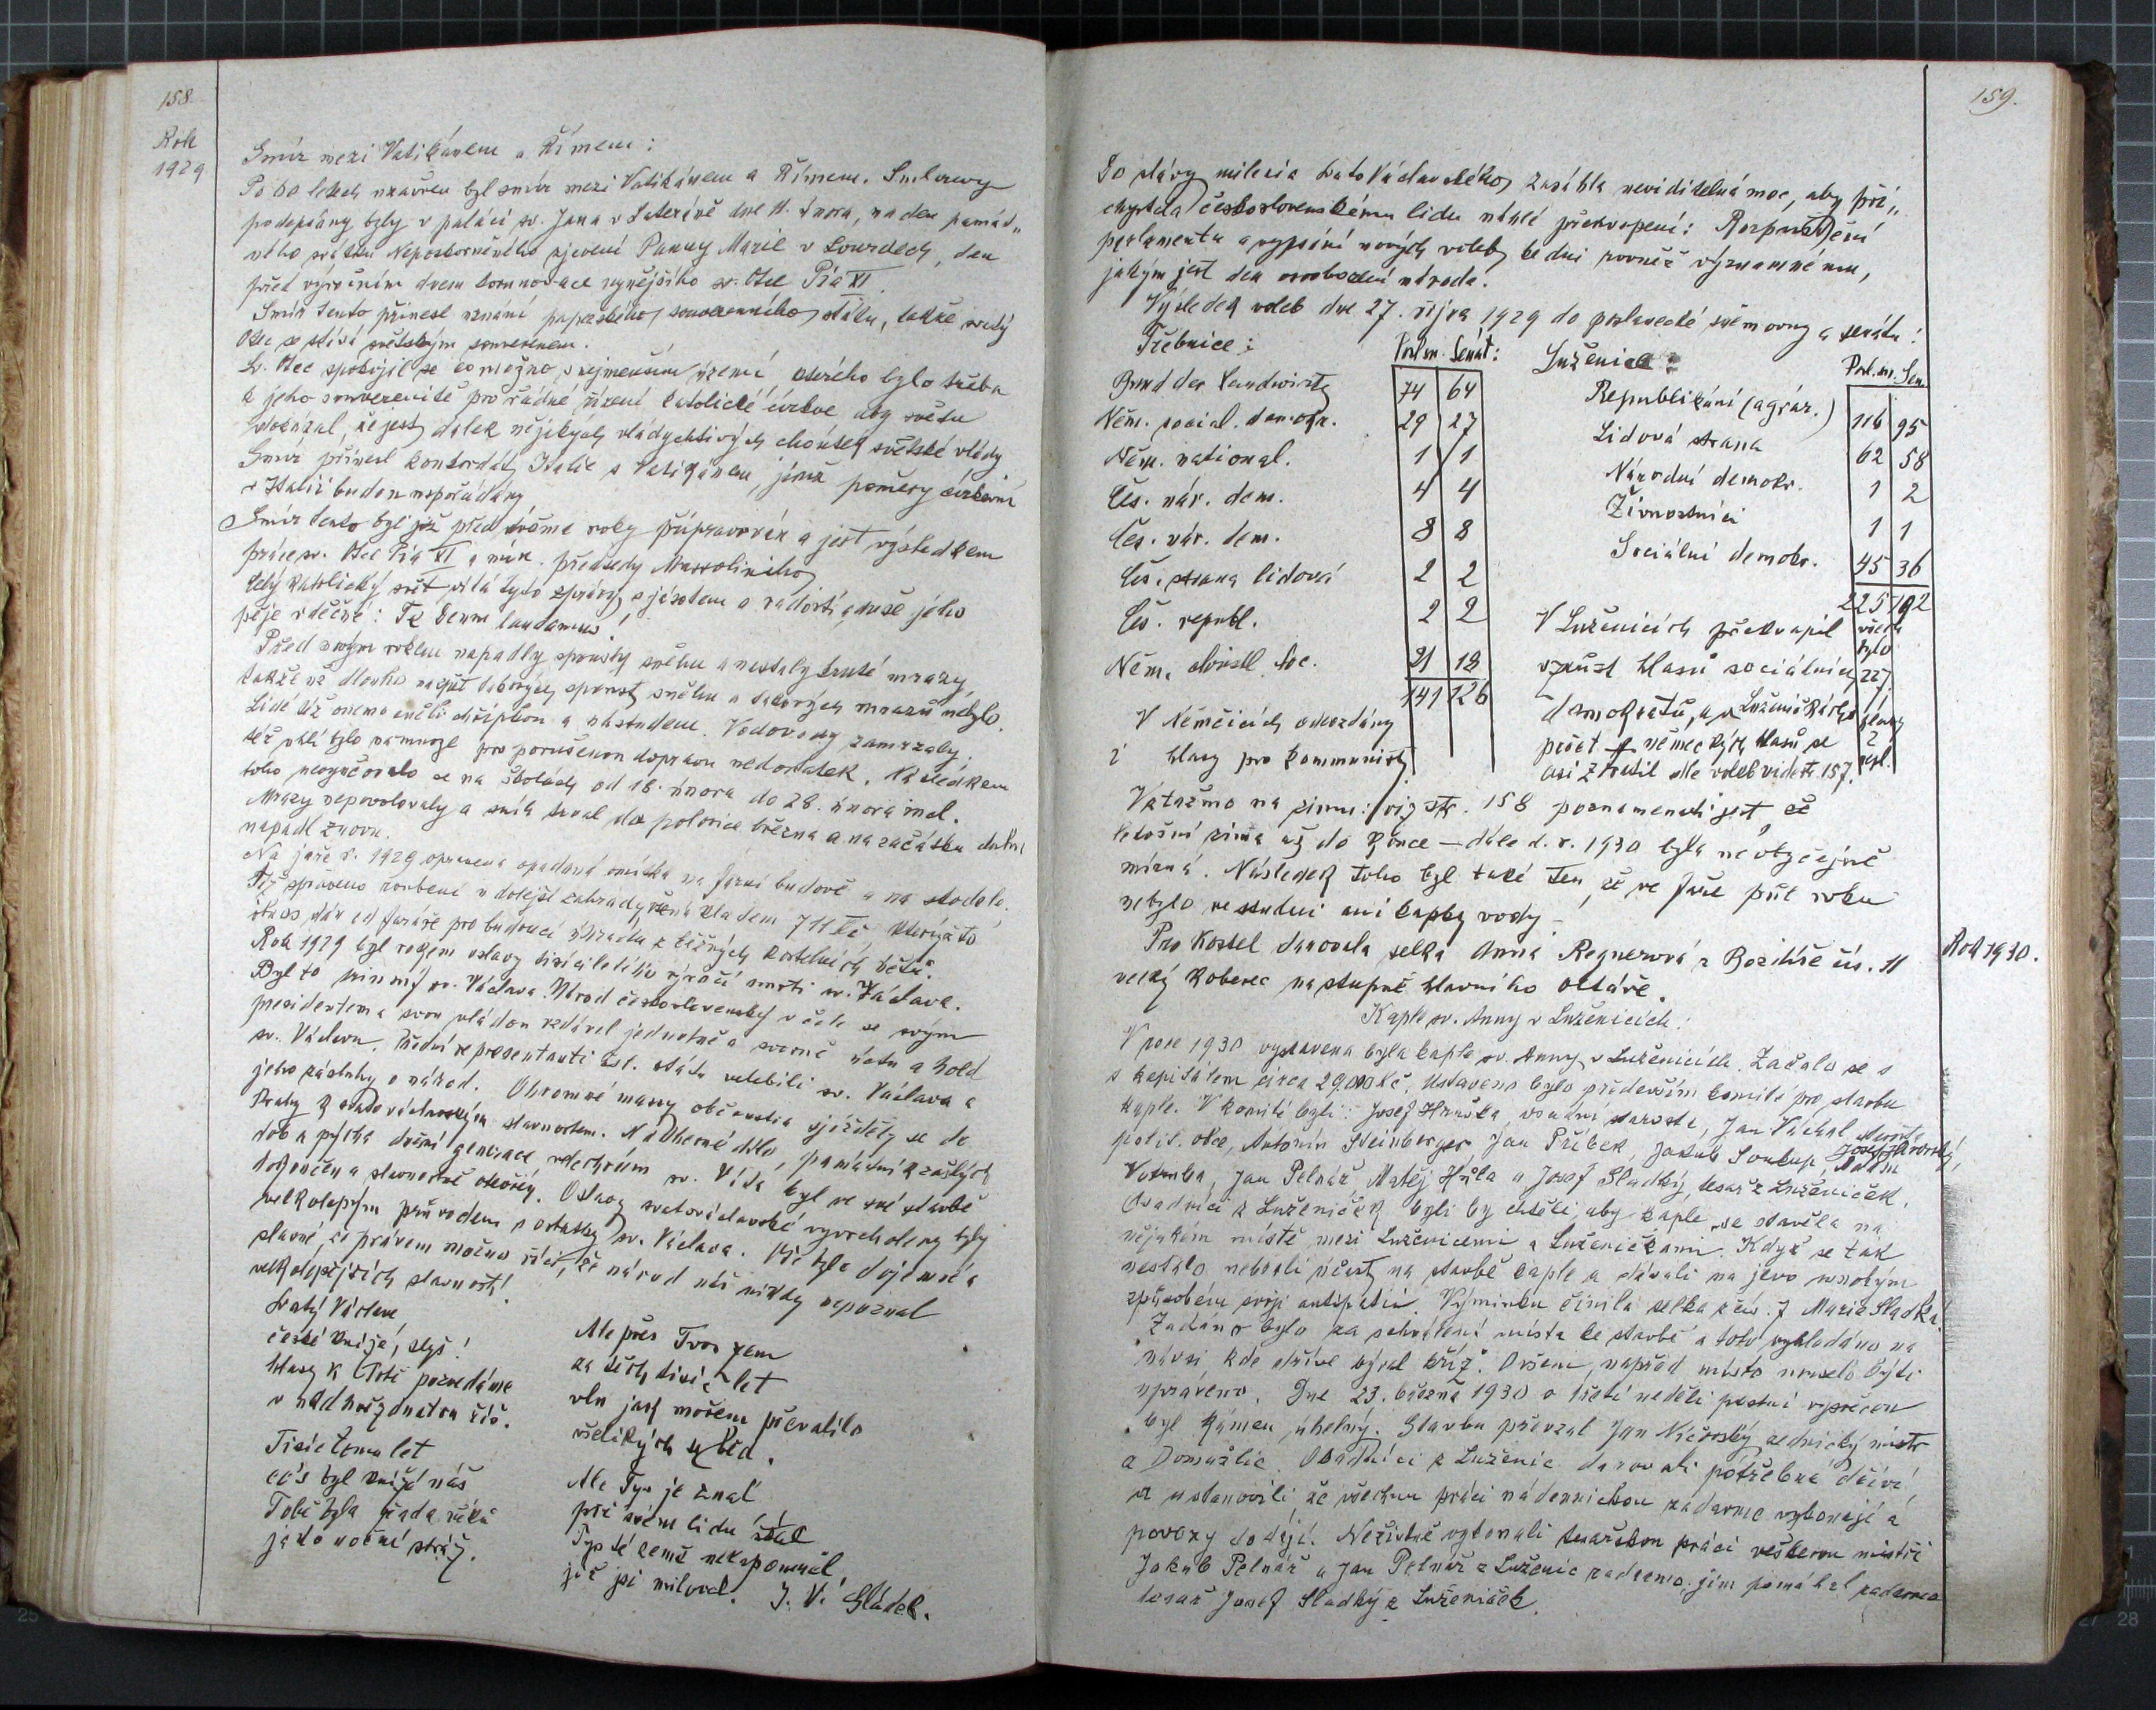 158.
Rok
1929
Smír mezi Vatikánem a Římem:
Po 60 letech uzavřen byl smír mezi Vatikánem a Římem. Smlouvy
podepsány byly v paláci sv. Jana v Lateráně dne 11. února, na den památ„
ného svátku Neposkvrněného zjevení Panny Marie v Lourdech, den
před výročním dnem korunovace nynějšího sv. Otce Pia XI.
Smír tento přinesl uznání papežského souverenního státu, takže svatý
Otec se stává světským souverenem.
Sv. Otec spokojil se co možno s nejmenším územím kterého bylo třeba
k jeho souverenitě pro řádné řízení katolické církve aby světu
dokázal, že jest dalek nějakých vládychtivých choutek světské vlády
Smír přinesl konkordát Italie s Vatikánem, jímž poměry církevní
v Italii budou uspořádány
Smír tento byl již před dvěma roky připravován a jest výsledkem
práce sv. Otce Pia XI a min. předsedy Mussoliniho
Celý katolický svět vítá tyto zprávy s jásotem a radostí a duše jeho
pěje vděčně: Te Deum laudamus!
Před novým rokem napadly spousty sněhu a nastaly kruté mrazy
takže už dlouho takových spoust sněhu a takových mrazů nebylo.
Lidé též onemocněli chřipkou a nastudem. Vodovody zamrzaly,
též uhlí bylo namnoze pro porušenou dopravu nedostatek. Následkem
toho nevyučovalo se na školách od 18. února do 28. února incl.
Mrazy nepovolovaly a sníh trval do polovice března a na začátku dubna
napadl znovu.
Na jaře r. 1929 opravena opadaná omítka na farní budově a na stodole.
Též spraveno roubení v dolejší zahrady, vše nákladem 711 Kč kterýžto
obnos dán od faráře pro budoucí úhradu z běžných kostelních účtů.
Rok 1929 byl rokem oslavy tisíciletého výročí smrti sv. Václava.
Byl to mír sv. Václava. Národ československý v čele se svým
presidentem a svou vládou vzdával jednotně a svorně úctu a hold
sv. Václavu. Přední representanti čsl. státu velebili sv. Václava a
jeho zásluhy o národ. Ohromné massy občanstva sjížděly se do
Prahy k svatováclavským slavnostem. Nádherné dílo, památník zašlých
dob a pýcha dnešní generace velechrám sv. Víta byl ve své stavbě
dokončen a slavnostně otevřen. Oslavy svatováclavské vyvrcholeny byly
velkolepým průvodem s ostatky sv. Václava. Vše bylo dojemné a
slavné, že právem možno říci, že národ náš nikdy nepoznal
velkolepějších slavností!
Svatý Václave,
české kníže, slyš!
hlasy k Tobě pozvedáme
v nadhvězdnatou říš.
Tisíc tomu let
co's byl kníže náš
Tobě byla řada věků
jako noční stráž.
Ale přes Tvou zem
za těch tisíc let
vln jak mořem převalilo
velikých se běd.
Ale Tys je znal
při svém lidu stál
Tys té země nezapomněl,
již jsi miloval. J. V. Sládek.
159.
Do slávy milenia Svato Václavského zasáhla neviditelná moc, aby při„
chystala československému lidu náhlé překvapení: Rozpuštění
parlamentu a vypsání nových voleb ke dni rovněž významnému,
jakým jest den osvobození národa.
Výsledek voleb dne 27. října 1929 do poslanecké sněmovny a senátu:
Třebnice: Posl. sn. Senát: Luženice: Posl. sn. Sen.
Bund der Landwirte 74 64 Republikáni (agrár.) 116 95
Něm. social. demokr. 29 27 Lidová strana 62 58
Něm. national. 1 1 Národní demokr. 1 2
Čes. nár. dem. 4 4 Živnostníci 1 1
Čes. nár. dem. 8 8 Sociální demokr. 45 36
Čes. strana lidová 2 2 225 192
Čes. republ. 2 2 V Luženicích překvapil všech
Něm. christl. soc. 21 18 vzrůst hlasů sociálních bylo 227
141 126
V Němčicích odevzdány demokratů, a v Luženičkách
2 hlasy pro kommunisty počet německých hlasů se
asi ztratil dle voleb vid. str. 157.
Vztažmo na zimu: viz str. 158 poznamenati jest, že
letošní zima až do konce — dále d. r. 1930 byla neobyčejně
mírná. Následek toho byl také ten, že ve faře půl roku
nebylo ve studni ani kapky vody —
Pro kostel darovala selka Anna Regnerová z Bozdíše čís. 11
velký koberec na stupně hlavního oltáře.
Rok 1930.
Kaple sv. Anny v Luženicích:
V roce 1930 vystavena byla kaple sv. Anny v Luženicích. Začalo se s
s kapitálem circa 29.000 Kč. Ustaveno bylo především komité pro stavbu
kaple. V komité byli: Josef Hruška, osadní starosta, Jan Váchal, starosta
polit. obce, Antonín Steinberger, Jan Příbek, Jakub Soukup, Adam
Votruba, Jan Pelnář, Matěj Hála a Josef Sladký, tesař z Luženiček.
Osadníci z Luženiček byli by chtěli, aby kaple se stavěla na
nějakém místě mezi Luženicemi a Luženičkami. Když se tak
nestalo nebrali účast na stavbě kaple a dávali na jevo mnohým
způsobem svoji antipatii. Výminku činila selka z čís. 7 Marie Sladká.
Žádáno bylo za schválení místa ke stavbě a toto vyhledáno na
návsi, kde dříve býval kříž. Ovšem, napřed místo muselo býti
upraveno. Dne 23. března 1930 o třetí neděli postní vysvěcen
byl kámen úhelný. Stavbu převzal Jan Ničovský zednický mistr
z Domažlic. Osadníci z Luženic darovali potřebné dříví
a ustanovili, že všechnu práci nádennickou zadarmo vykonají a
povozy dodají. Nezištně vykonali tesařskou práci veškerou mistři
Jakub Pelnář a Jan Pelnář z Luženic zadarmo. jim pomáhal zadarmo
tesař Josef Sladký z Luženiček.